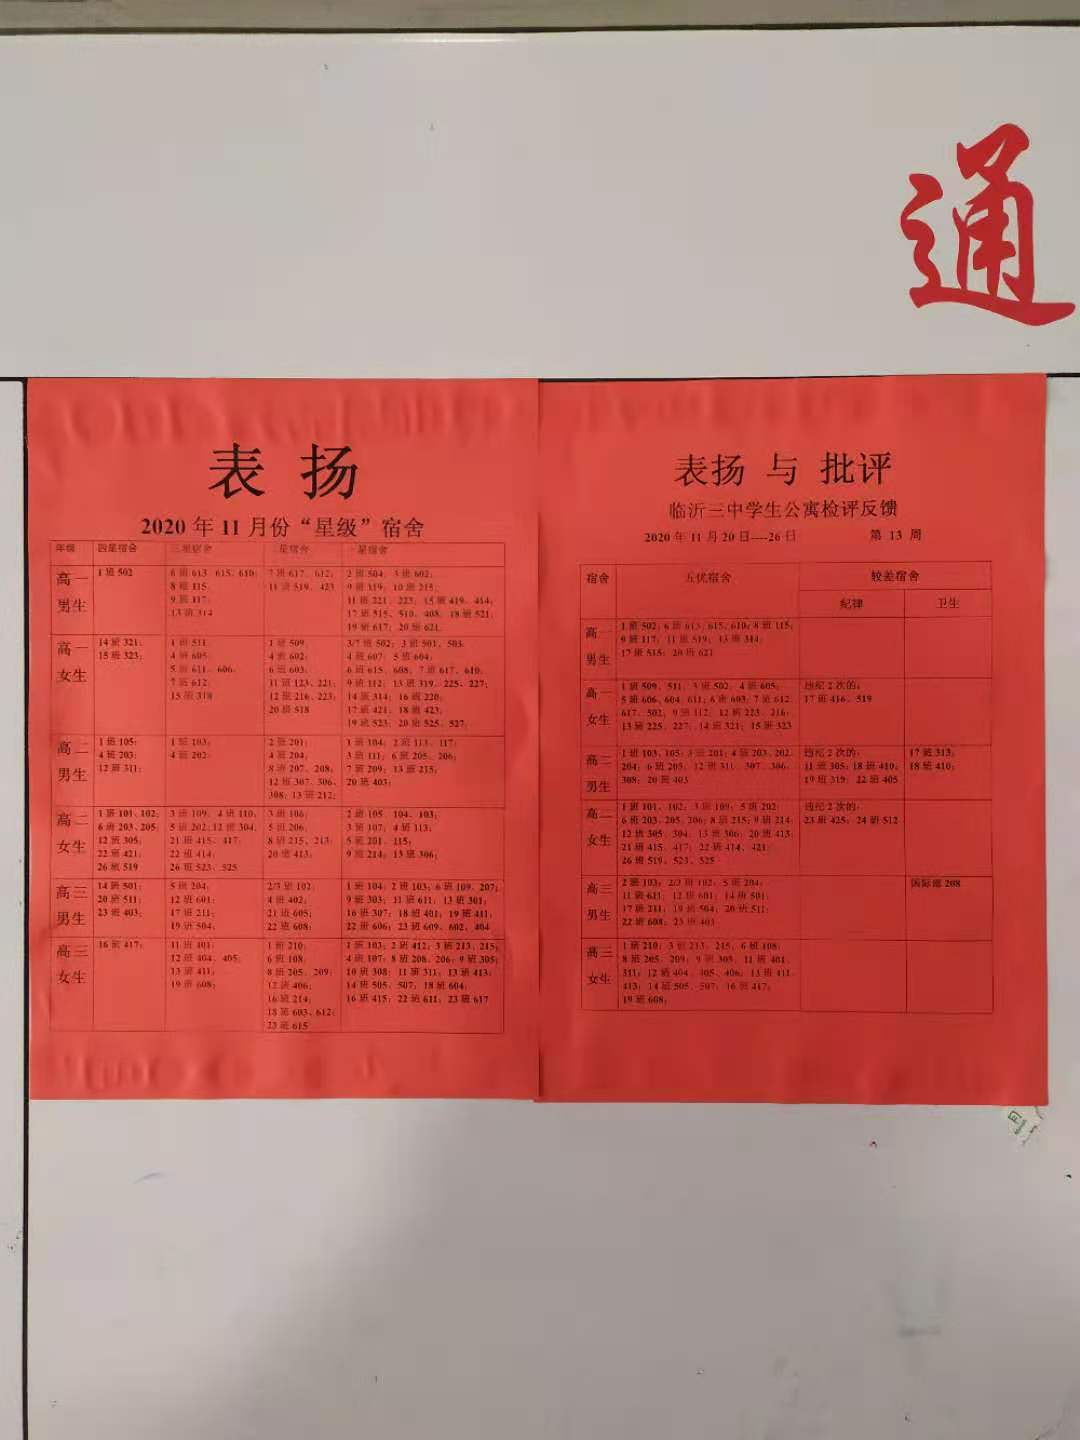 通
表 扬
2020 年 11 月份“星级”宿舍
年级 四星宿舍 三星宿舍 星宿舍 星宿舍
高一男生
1 班 502
6 班 613、615、610;
8 班 115;
9 班 117;
13 班 314
7 班 617、612;
11 班 519、423
2 班 504; 3 班 602;
9 班 119; 10 班 215;
11 班 221、223; 15 班 419、414;
17 班 515、510、408; 18 班 521;
19 班 617; 20 班 621
高一女生
14 班 321;
15 班 323;
1 班 511;
4 班 605;
5 班 611、606;
7 班 612;
15 班 318
1 班 509;
4 班 602;
6 班 603;
11 班 123、221;
12 班 216、223;
20 班 518
3/7 班 502; 3 班 501、503;
4 班 607; 5 班 604;
6 班 615、608; 7 班 617、610;
9 班 112; 13 班 319、225、227;
14 班 314; 16 班 220;
17 班 421; 18 班 423;
19 班 523; 20 班 525、527;
高二男生
1 班 105;
4 班 203;
12 班 311;
1 班 103;
4 班 202;
2 班 201;
4 班 204;
8 班 207、208;
12 班 307、306、
308; 13 班 212;
1 班 104; 2 班 113、117;
3 班 111; 6 班 205、206;
7 班 209; 13 班 215;
20 班 403;
高二女生
1 班 101、102;
6 班 203、205;
12 班 305;
22 班 421;
26 班 519
3 班 109、4 班 110;
5 班 202; 12 班 304;
21 班 415、417;
22 班 414;
26 班 523、525
3 班 106;
5 班 206;
8 班 215、213;
20 班 413;
2 班 105、104、103;
3 班 107; 4 班 113;
5 班 201、115;
9 班 214; 13 班 306;
高三男生
14 班 501;
20 班 511;
23 班 403;
5 班 204;
12 班 601;
17 班 211;
19 班 504;
2/3 班 102;
4 班 402;
21 班 605;
22 班 608;
1 班 104; 2 班 103; 6 班 109、207;
9 班 303; 11 班 611; 13 班 301;
16 班 307; 18 班 401; 19 班 411;
22 班 606; 23 班 609、602、404
高三女生
16 班 417;
11 班 401;
12 班 404、405;
13 班 411;
19 班 608;
1 班 210;
6 班 108;
8 班 205、209;
12 班 406;
16 班 214;
18 班 603、612;
23 班 615
1 班 103; 2 班 412; 3 班 213、215;
4 班 107; 8 班 208、206; 9 班 305;
10 班 308; 11 班 311; 13 班 413;
14 班 505、507; 18 班 604;
16 班 415; 22 班 611; 23 班 617
表扬 与 批评
临沂三中学生公寓检评反馈
2020 年 11 月 20 日----26 日 第 13 周
宿舍 五优宿舍 较差宿舍
纪律 卫生
高一男生
1 班 502; 6 班 613、615、610; 8 班 115;
9 班 117; 11 班 519; 13 班 314;
17 班 515; 20 班 621
高一女生
1 班 509、511; 3 班 502; 4 班 605;
5 班 606、604、611; 6 班 603; 7 班 612、
617、502; 9 班 112; 12 班 223、216;
13 班 225、227; 14 班 321; 15 班 323
违纪 2 次的:
17 班 416、519
高二男生
1 班 103、105; 3 班 201; 4 班 203、202、
204; 6 班 205; 12 班 311、307、306、
308; 20 班 403
违纪 2 次的:
11 班 305; 18 班 410;
19 班 319; 22 班 405
17 班 313;
18 班 410;
高二女生
1 班 101、102; 3 班 109; 5 班 202;
6 班 203、205、206; 8 班 215; 9 班 214;
12 班 305、304; 13 班 306; 20 班 413;
21 班 415、417; 22 班 414、421;
26 班 519、523、525
违纪 2 次的:
23 班 425; 24 班 512
高三男生
2 班 103; 2/3 班 102; 5 班 204;
11 班 621; 12 班 601; 14 班 501;
17 班 211; 19 班 504; 20 班 511;
22 班 608; 23 班 403
国际部 208
高三女生
1 班 210; 3 班 213、215; 6 班 108;
8 班 205、209; 9 班 303; 11 班 401、
311; 12 班 404、405、406; 13 班 411、
413; 14 班 505、507; 16 班 417;
19 班 608;